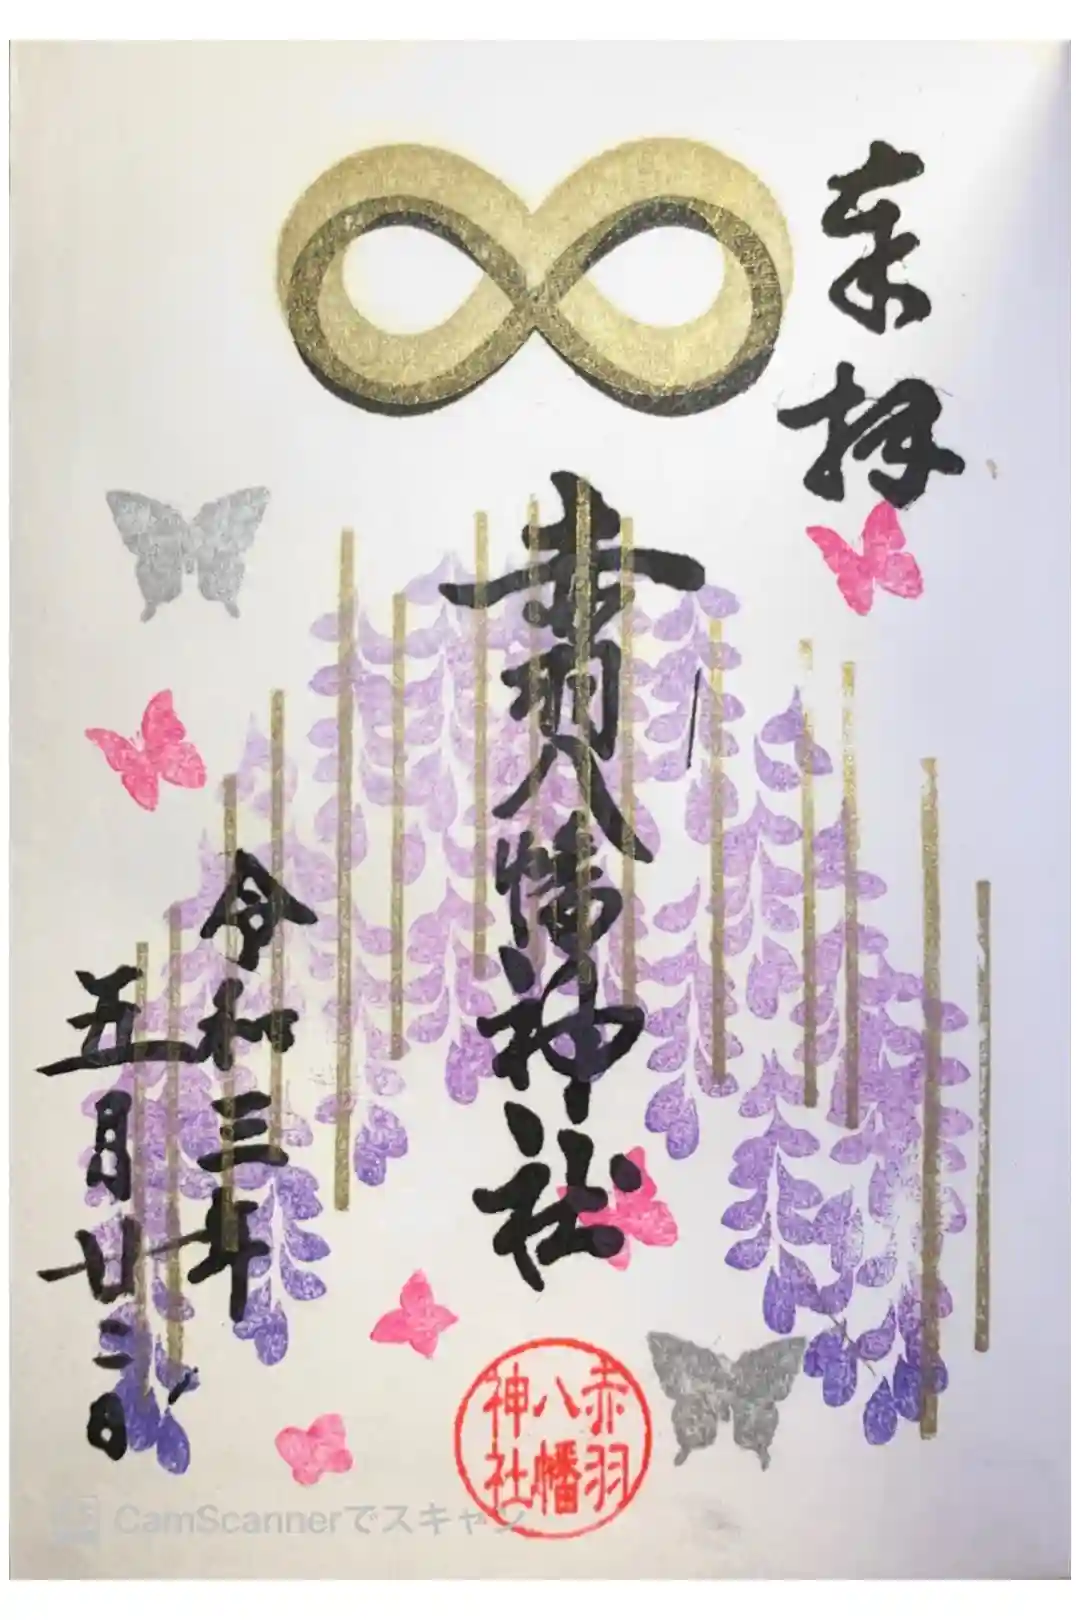 奉拝
赤羽八幡神社
令和三年
五月廿二日
赤羽
八幡
神社
CamScannerでスキャン